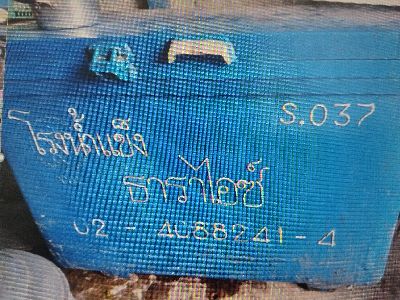 S.037
โรงน้ำแข็ง
ธาราไอซ์
02-4088241-4